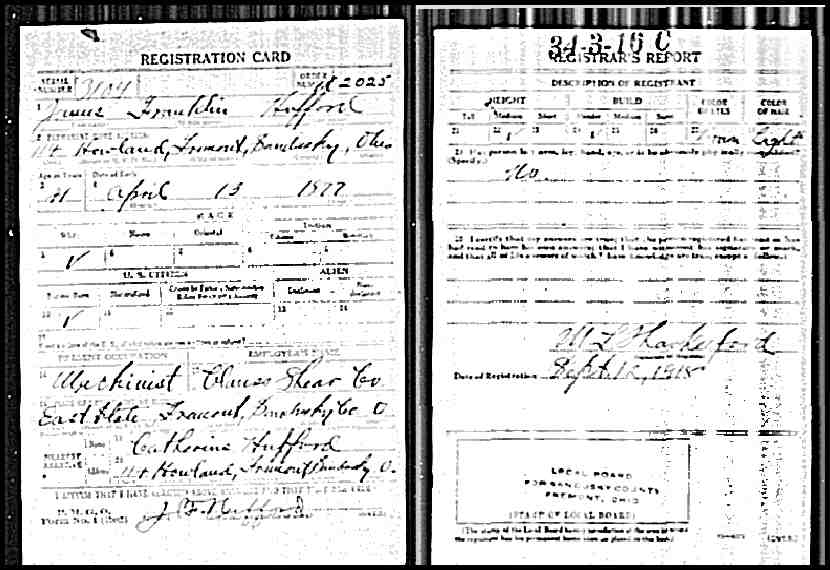 REGISTRATION CARD
SERIAL NUMBER 3104 ORDER NUMBER 2025
1 James Franklin Hufford
2 PERMANENT HOME ADDRESS:
114 Howland, Fremont, Sandusky, Ohio
Age in Years Date of Birth
3 41 4 April 13 1877
RACE
White Negro Oriental Indian
5 ✓ 6 7 8 9
U. S. CITIZEN ALIEN
10 ✓ 11 12 13 14
15
PRESENT OCCUPATION EMPLOYER'S NAME
16 Machinist 17 Clauss Shear Co
East State, Fremont, Sandusky Co O.
NEAREST RELATIVE Name 19 Catherine Hufford
Address 20 114 Howland, Fremont Sandusky O.
I AFFIRM THAT I HAVE VERIFIED ABOVE ANSWERS AND THAT THEY ARE TRUE
P. M. G. O.
Form No. 1 (Red) J. F. Hufford
34-3-16 C
REGISTRAR'S REPORT
DESCRIPTION OF REGISTRANT
HEIGHT BUILD COLOR OF EYES COLOR OF HAIR
Tall Medium Short Slender Medium Stout
21 22 ✓ 23 24 ✓ 25 26 27 Brown 28 Light
29 Has person lost arm, leg, hand, eye, or is he obviously physically disqualified?
(Specify.)
No.
30 I certify that my answers are true; that the person registered has read or has
had read to him his own answers; that I have witnessed his signature or mark,
and that all of his answers of which I have knowledge are true, except as follows:
Date of Registration Sept. 12, 1918
LOCAL BOARD
FOR SANDUSKY COUNTY
FREMONT, OHIO
(STAMP OF LOCAL BOARD)
(The stamp of the Local Board having jurisdiction of the area in which
the registrant has his permanent home shall be placed in this box.)
(OVER)